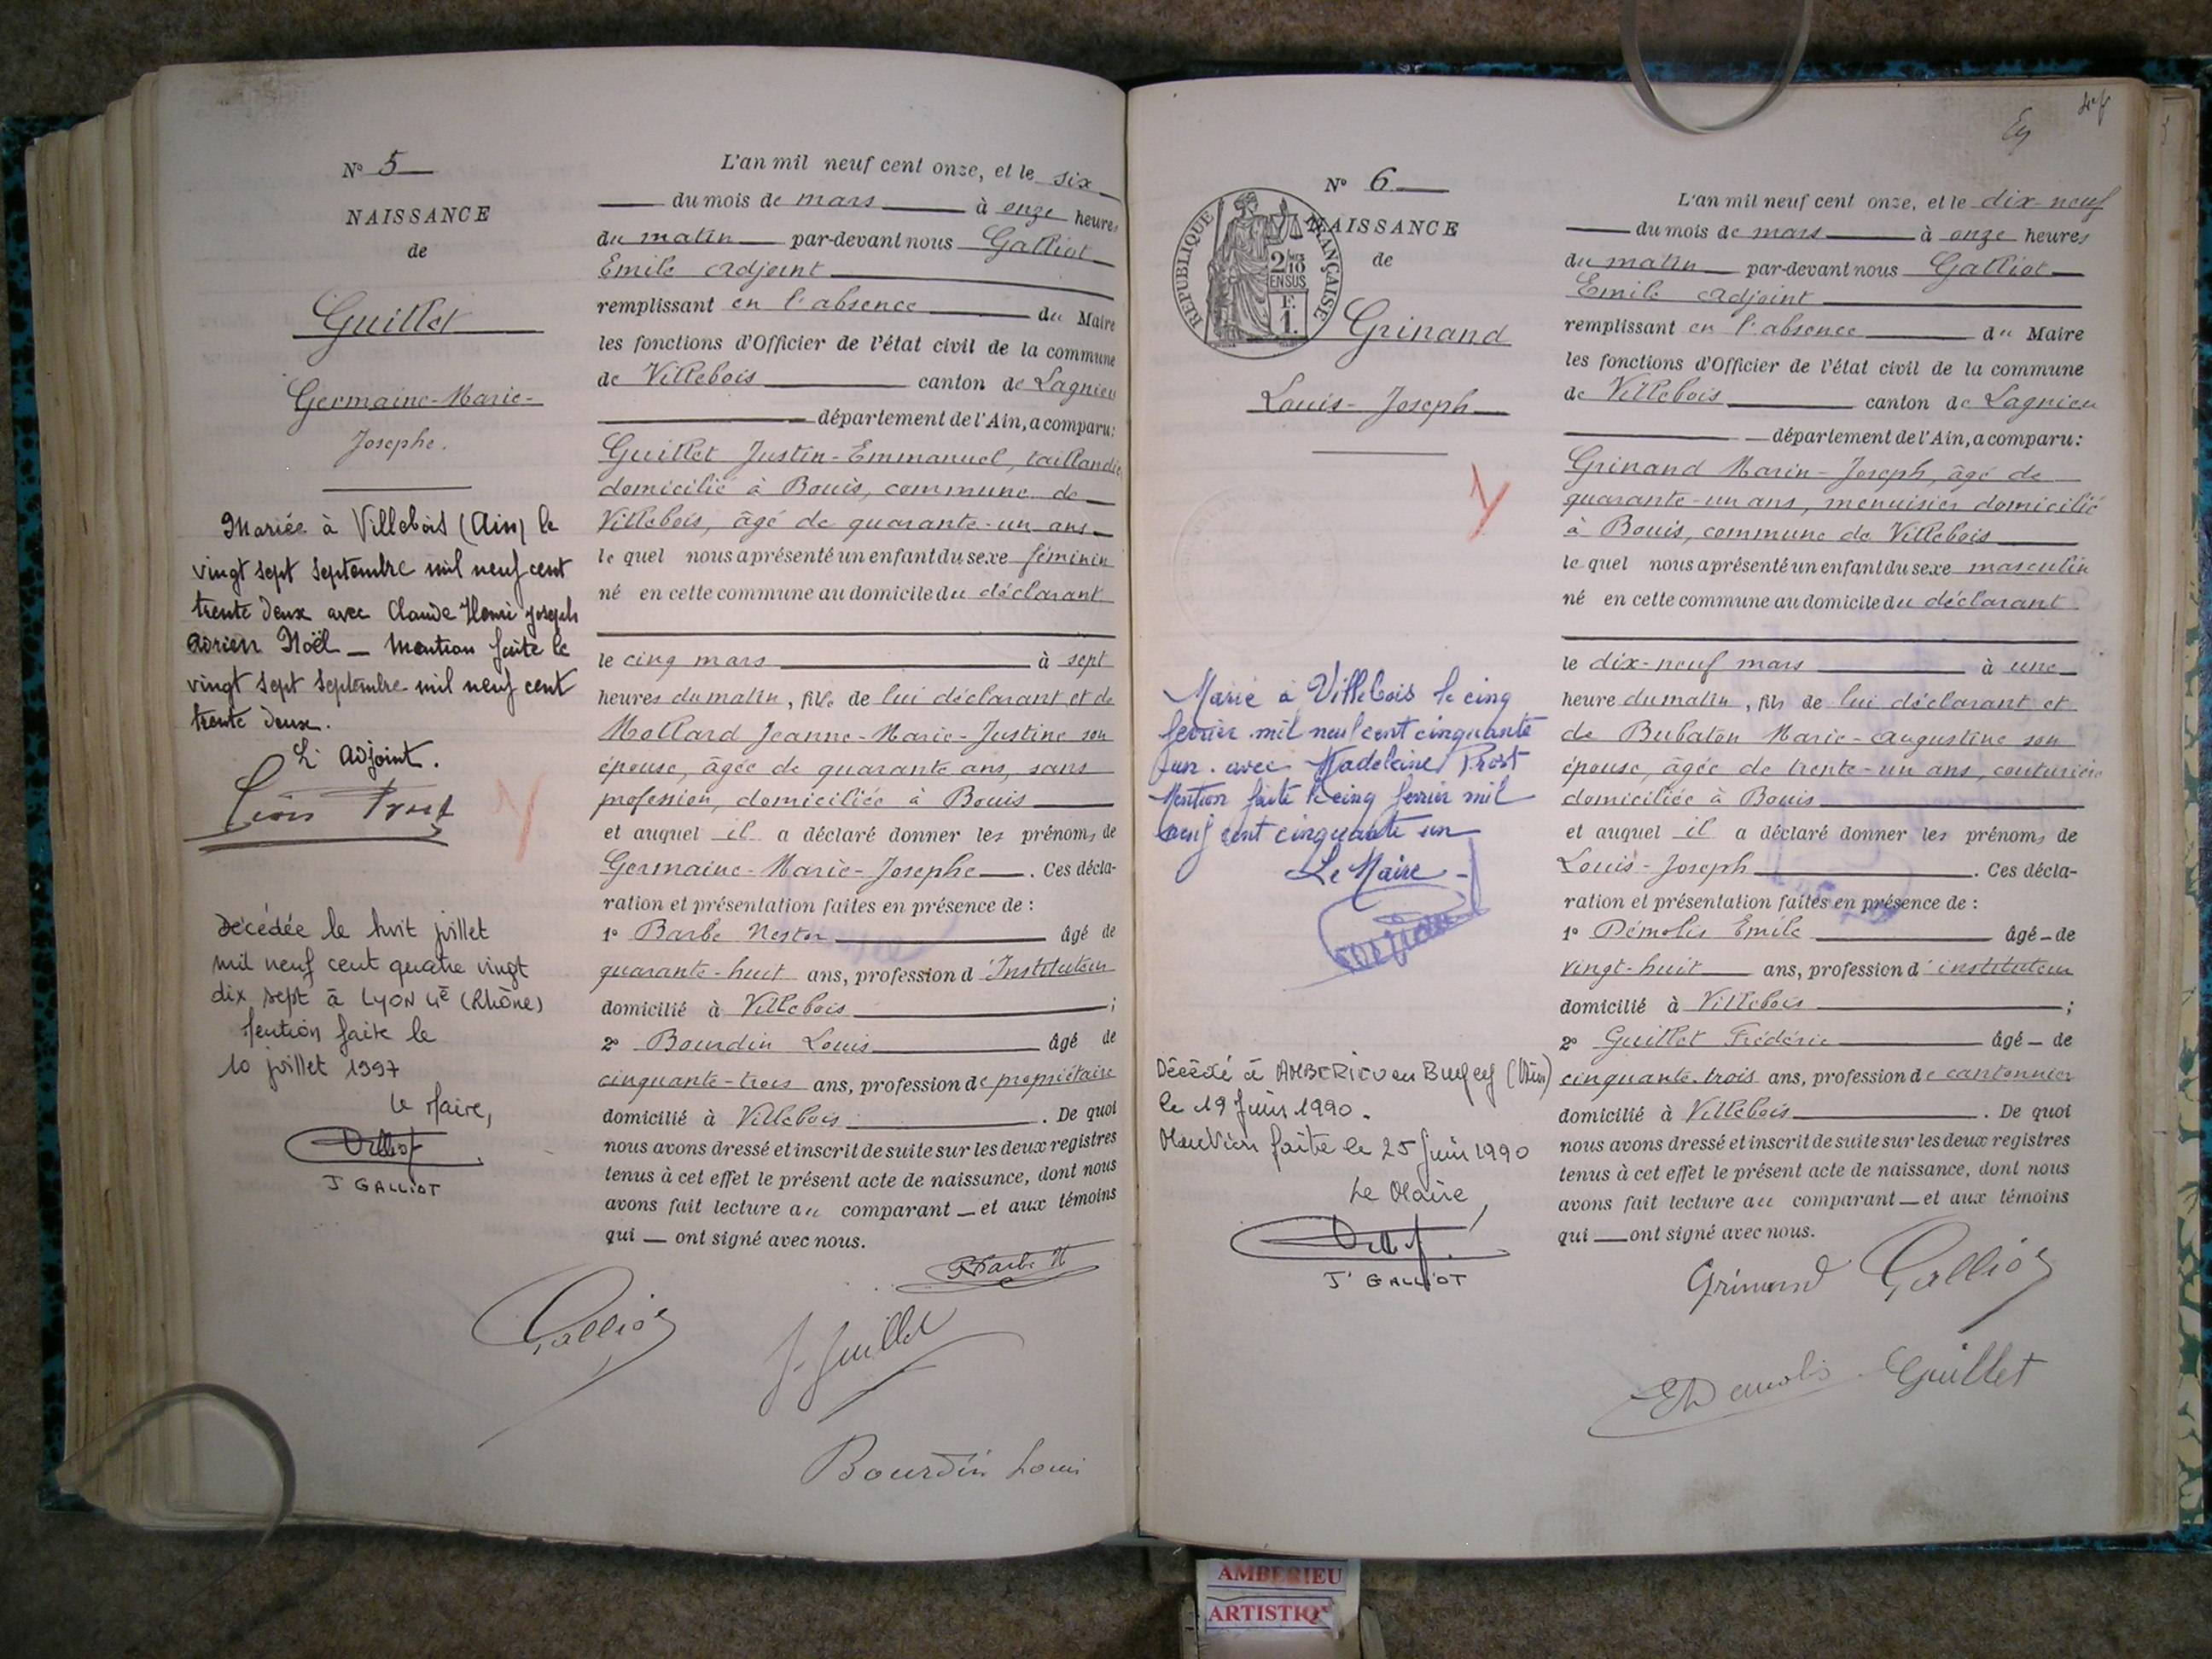 N° 5
NAISSANCE
de
Guillet
Germaine-Marie-
Josephe.
Mariée à Villebois (Ain) le
vingt sept septembre mil neuf cent
trente deux avec Claude Henri Joseph
Adrien Noël _ Mention faite le
vingt sept septembre mil neuf cent
trente deux.
L'Adjoint.
Décédée le huit juillet
mil neuf cent quatre vingt
dix sept à LYON 4è (Rhône)
Mention faite le
10 juillet 1997
Le Maire,
J GALLIOT
L'an mil neuf cent onze, et le six
du mois de mars à onze heures
du matin par-devant nous Galliot
Emile adjoint
remplissant en l'absence du Maire
les fonctions d'Officier de l'état civil de la commune
de Villebois canton de Lagnieu
département de l'Ain, a comparu:
Guillet Justin-Emmanuel, taillandier
domicilié à Bouis, commune de
Villebois, âgé de quarante-un ans
le quel nous a présenté un enfant du sexe féminin
né en cette commune au domicile du déclarant
le cinq mars à sept
heures du matin, fille de lui déclarant et de
Mollard Jeanne-Marie-Justine son
épouse, âgée de quarante ans, sans
profession, domiciliée à Bouis
et auquel il a déclaré donner les prénoms de
Germaine-Marie-Josephe. Ces décla-
ration et présentation faites en présence de :
1° Barbe Nestor âgé de
quarante-huit ans, profession d'Instituteur
domicilié à Villebois ;
2° Bourdin Louis âgé de
cinquante-trois ans, profession de propriétaire
domicilié à Villebois. De quoi
nous avons dressé et inscrit de suite sur les deux registres
tenus à cet effet le présent acte de naissance, dont nous
avons fait lecture au comparant et aux témoins
qui ont signé avec nous.
Barbe N
Galliot
J. Guillet
Bourdin Louis
N° 6
NAISSANCE
de
REPUBLIQUE FRANÇAISE
2/10
EN SUS
F.
1.
Grinand
Louis-Joseph
Marié à Villebois le cinq
février mil neuf cent cinquante
un. avec Madeleine Prost
Mention faite le cinq février mil
neuf cent cinquante un
Le Maire
Décédé à AMBERIEU en Bugey (Ain)
le 19 Juin 1990.
Mention faite le 25 Juin 1990
Le Maire,
J GALLIOT
L'an mil neuf cent onze, et le dix-neuf
du mois de mars à onze heures
du matin par-devant nous Galliot
Emile adjoint
remplissant en l'absence du Maire
les fonctions d'Officier de l'état civil de la commune
de Villebois canton de Lagnieu
département de l'Ain, a comparu:
Grinand Marin-Joseph, âgé de
quarante-un ans, menuisier domicilié
à Bouis, commune de Villebois
le quel nous a présenté un enfant du sexe masculin
né en cette commune au domicile du déclarant
le dix-neuf mars à une
heure du matin, fils de lui déclarant et
de Bubaton Marie-Augustine son
épouse, âgée de trente-un ans, couturière
domiciliée à Bouis
et auquel il a déclaré donner les prénoms de
Louis-Joseph. Ces décla-
ration et présentation faites en présence de :
1° Démolis Emile âgé de
vingt-huit ans, profession d'instituteur
domicilié à Villebois ;
2° Guillet Frédéric âgé de
cinquante-trois ans, profession de cantonnier
domicilié à Villebois. De quoi
nous avons dressé et inscrit de suite sur les deux registres
tenus à cet effet le présent acte de naissance, dont nous
avons fait lecture au comparant et aux témoins
qui ont signé avec nous.
Grinand Galliot
E Demolis Guillet
AMBERIEU
ARTISTIQ